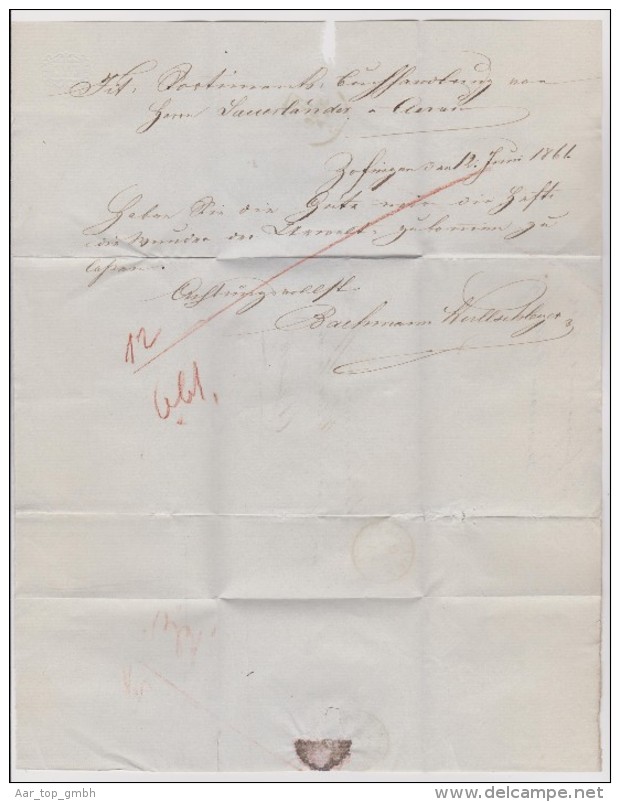 Tit. Sortiments-Buchhandlung von
Herrn Sauerländer, Aarau
Zofingen den 12. Juni 1861.
Haben Sie die Güte mir die Hefte
die Wunder der Urwelt zukommen zu
lassen.
Achtungsvollst
Bachmann
12
661.
Aar_top_gmbh
www.delcampe.net